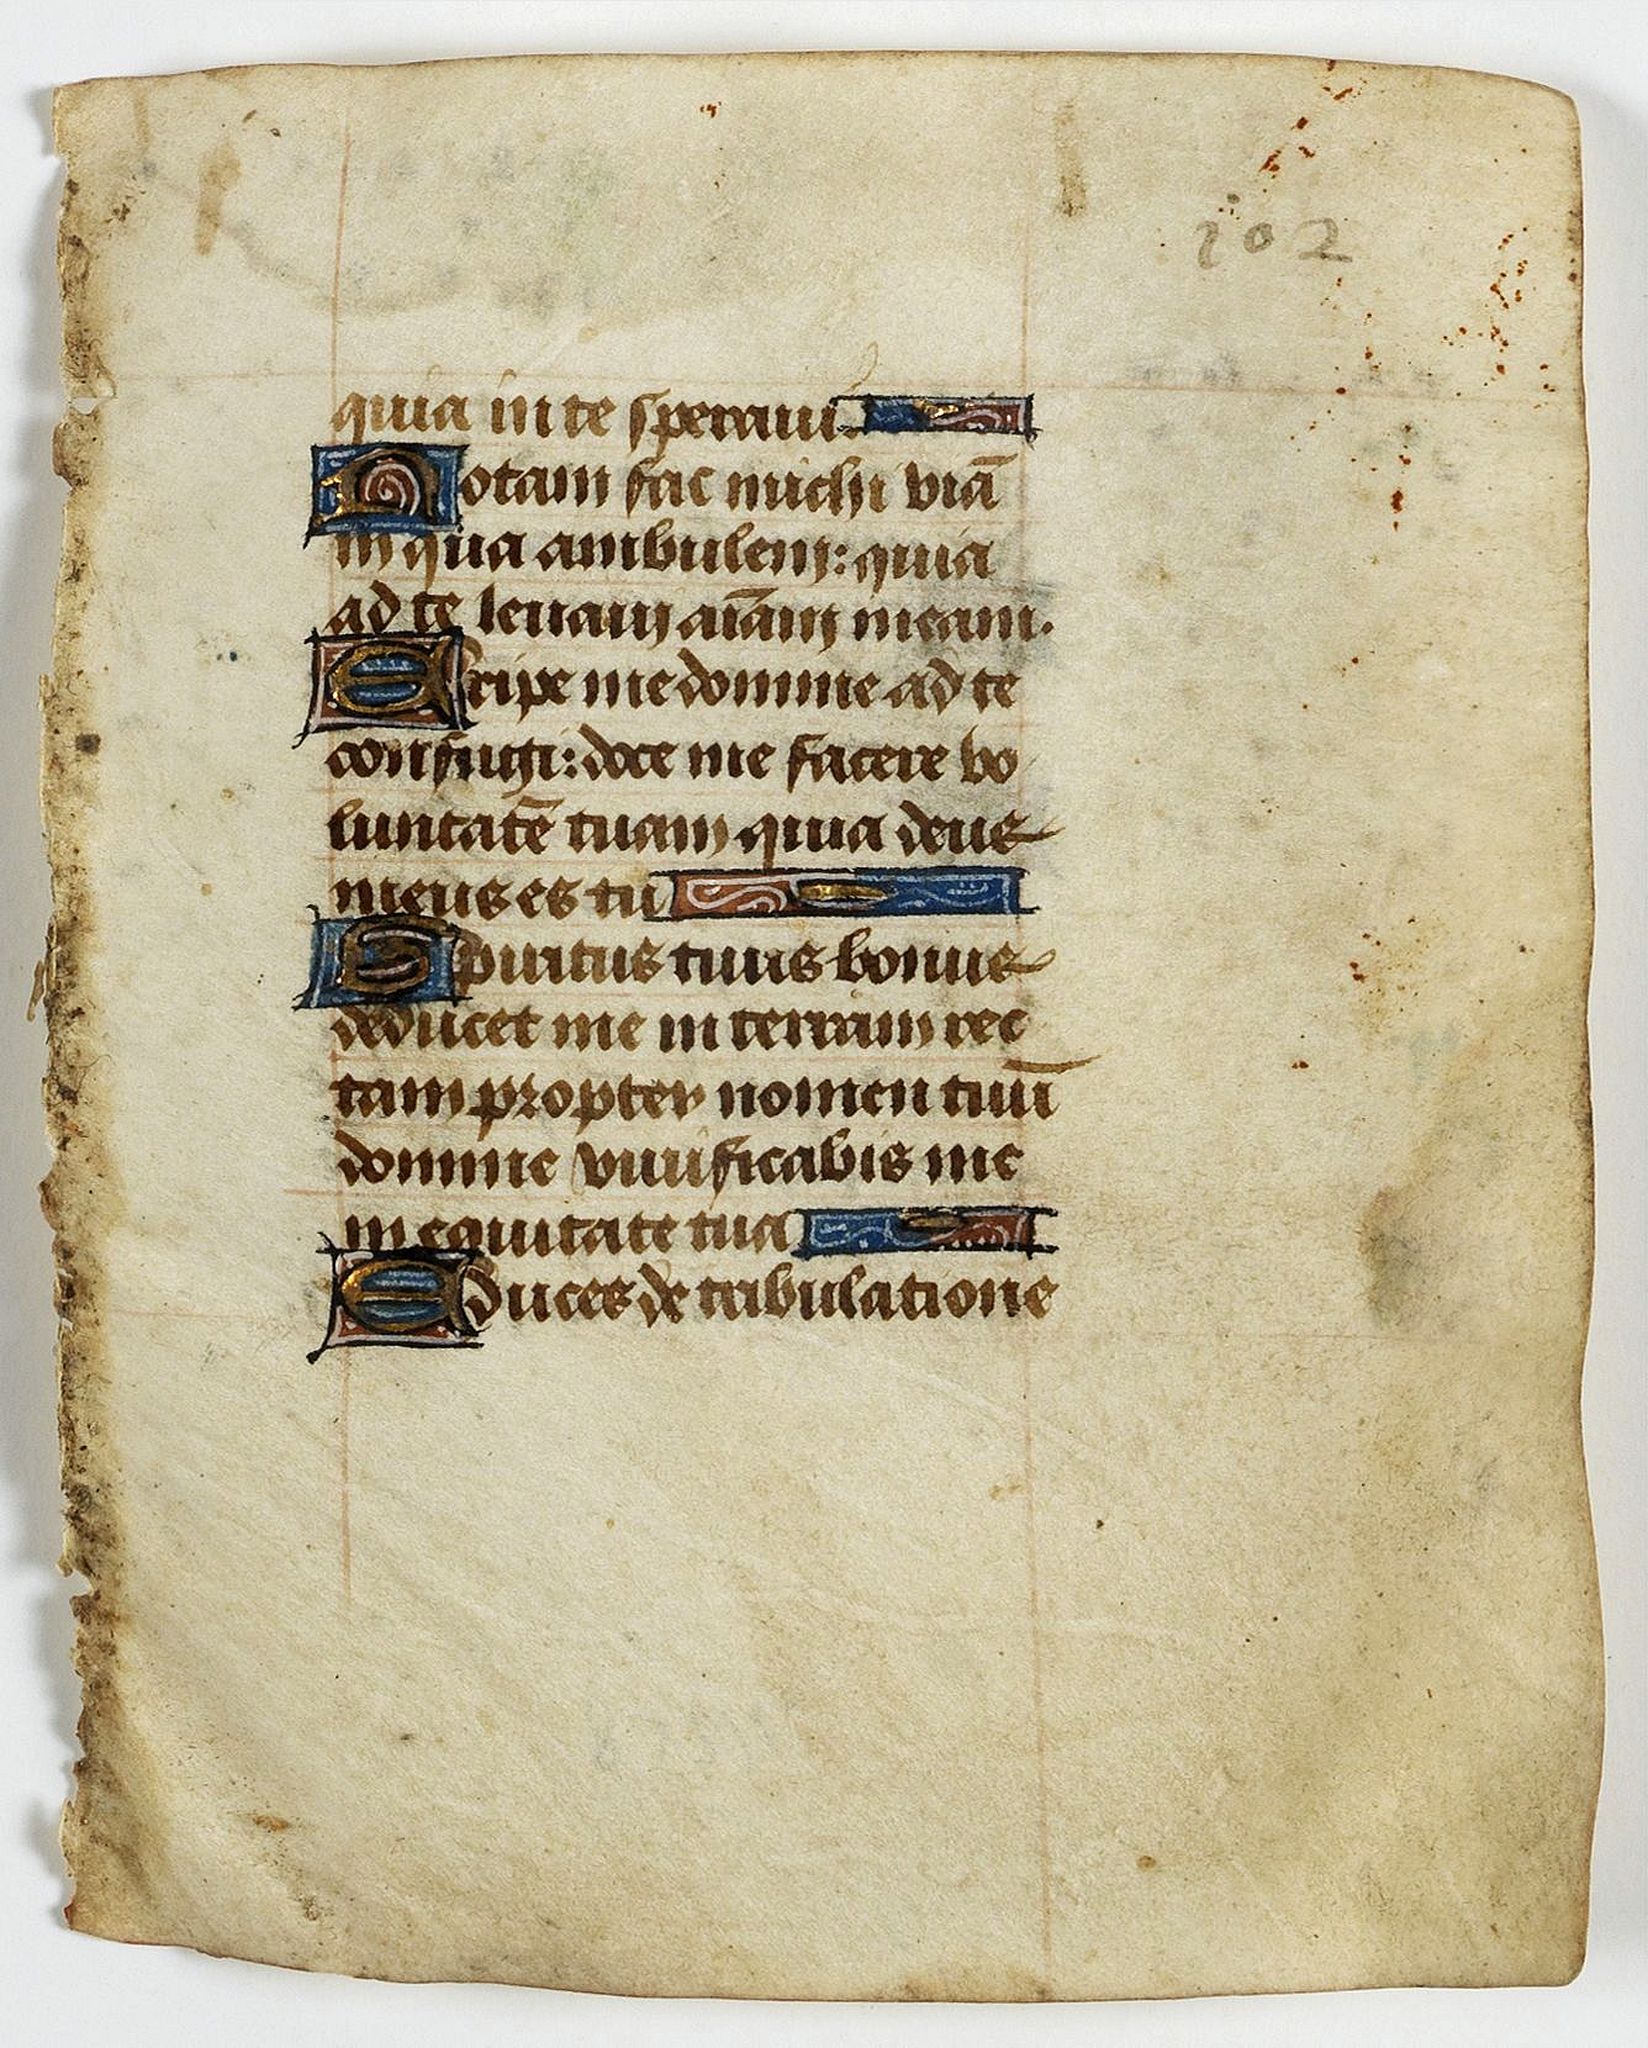 102
quia in te speraui.
Notam fac michi viā
in qua ambulem: quia
ad te leuaui aīam meam.
Eripe me domine ad te
confugi: doce me facere vo
luntatē tuam quia deus
meus es tu
Spiritus tuus bonus
deducet me in terram rec
tam propter nomen tuū
domine viuificabis me
in equitate tua
Educes de tribulatione